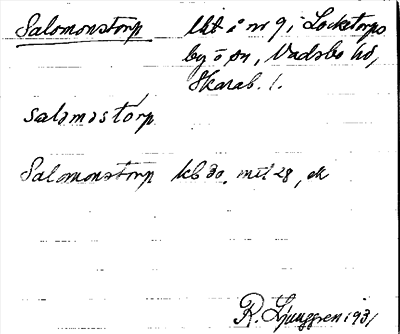 Salomonstorp lht i nr 9 i Locketorps
by o sn, Vadsbo hd,
Skarab. l.
salamastórp
Salomonstorp kb 30, mtl 28, ek
R. Ljunggren 1931